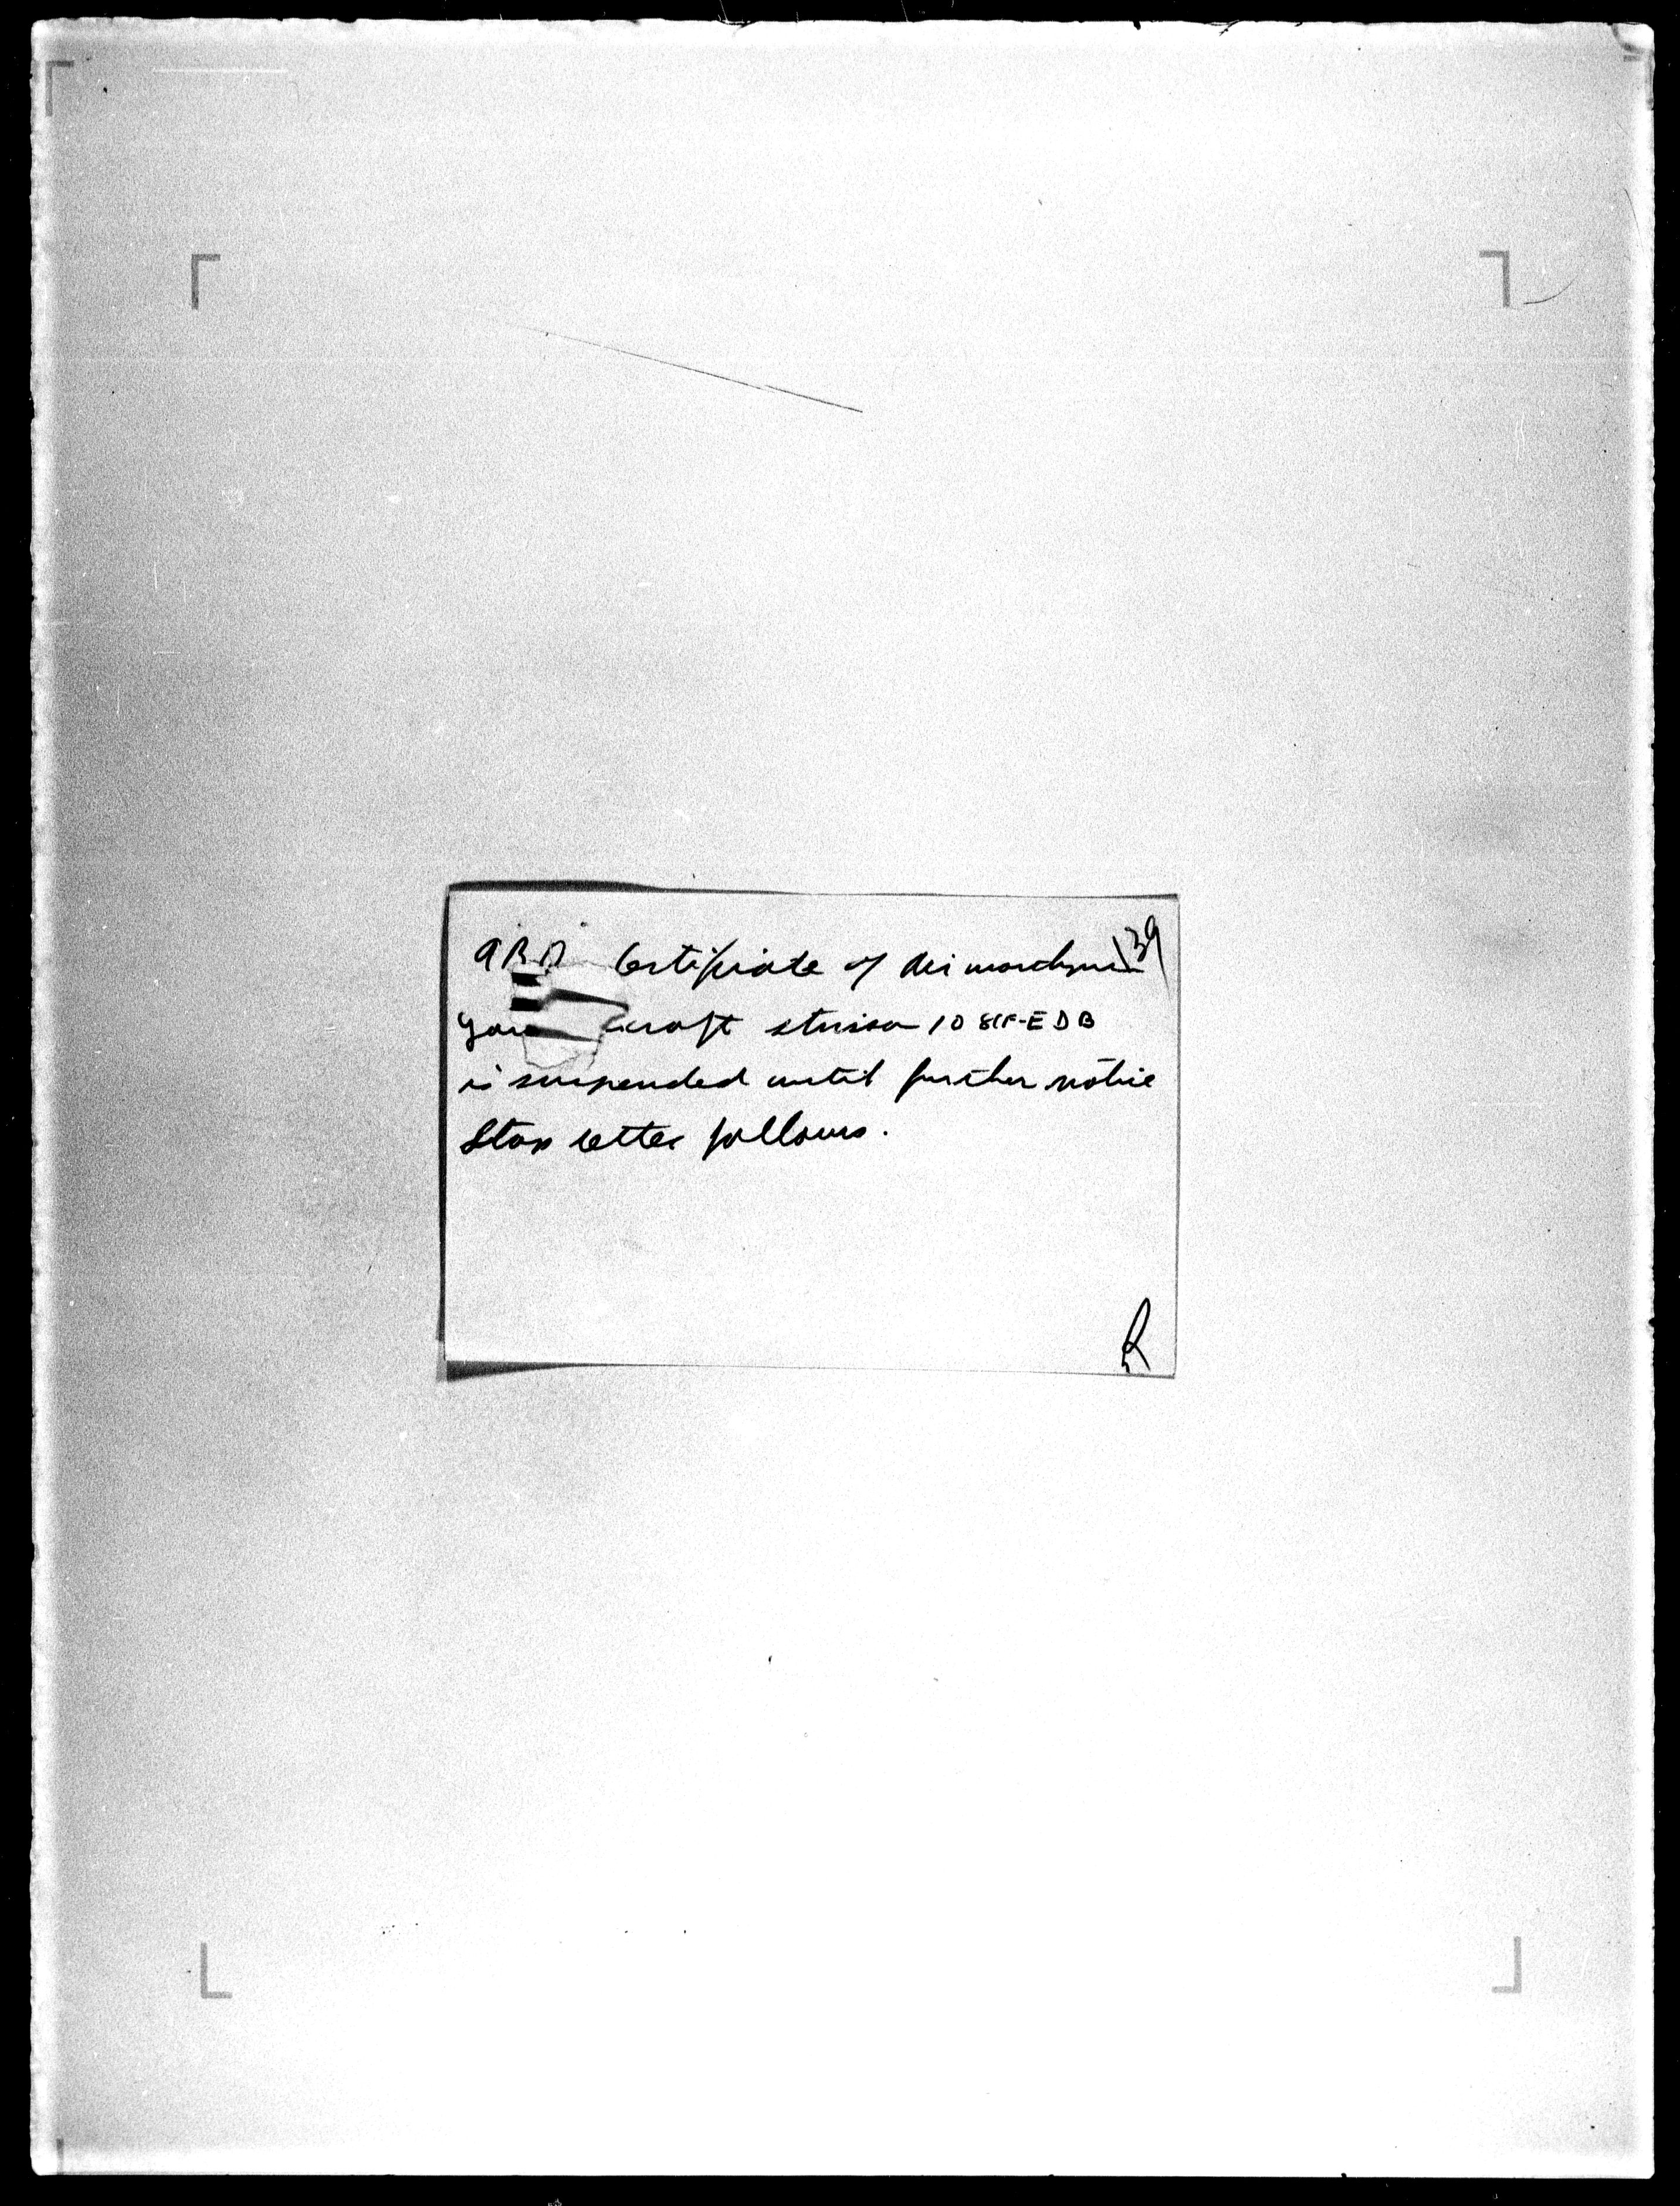 139
Certificate of airworthiness
your craft stinson 10 8 CF-EDB
is suspended until further notice
Stop letter follows.
R